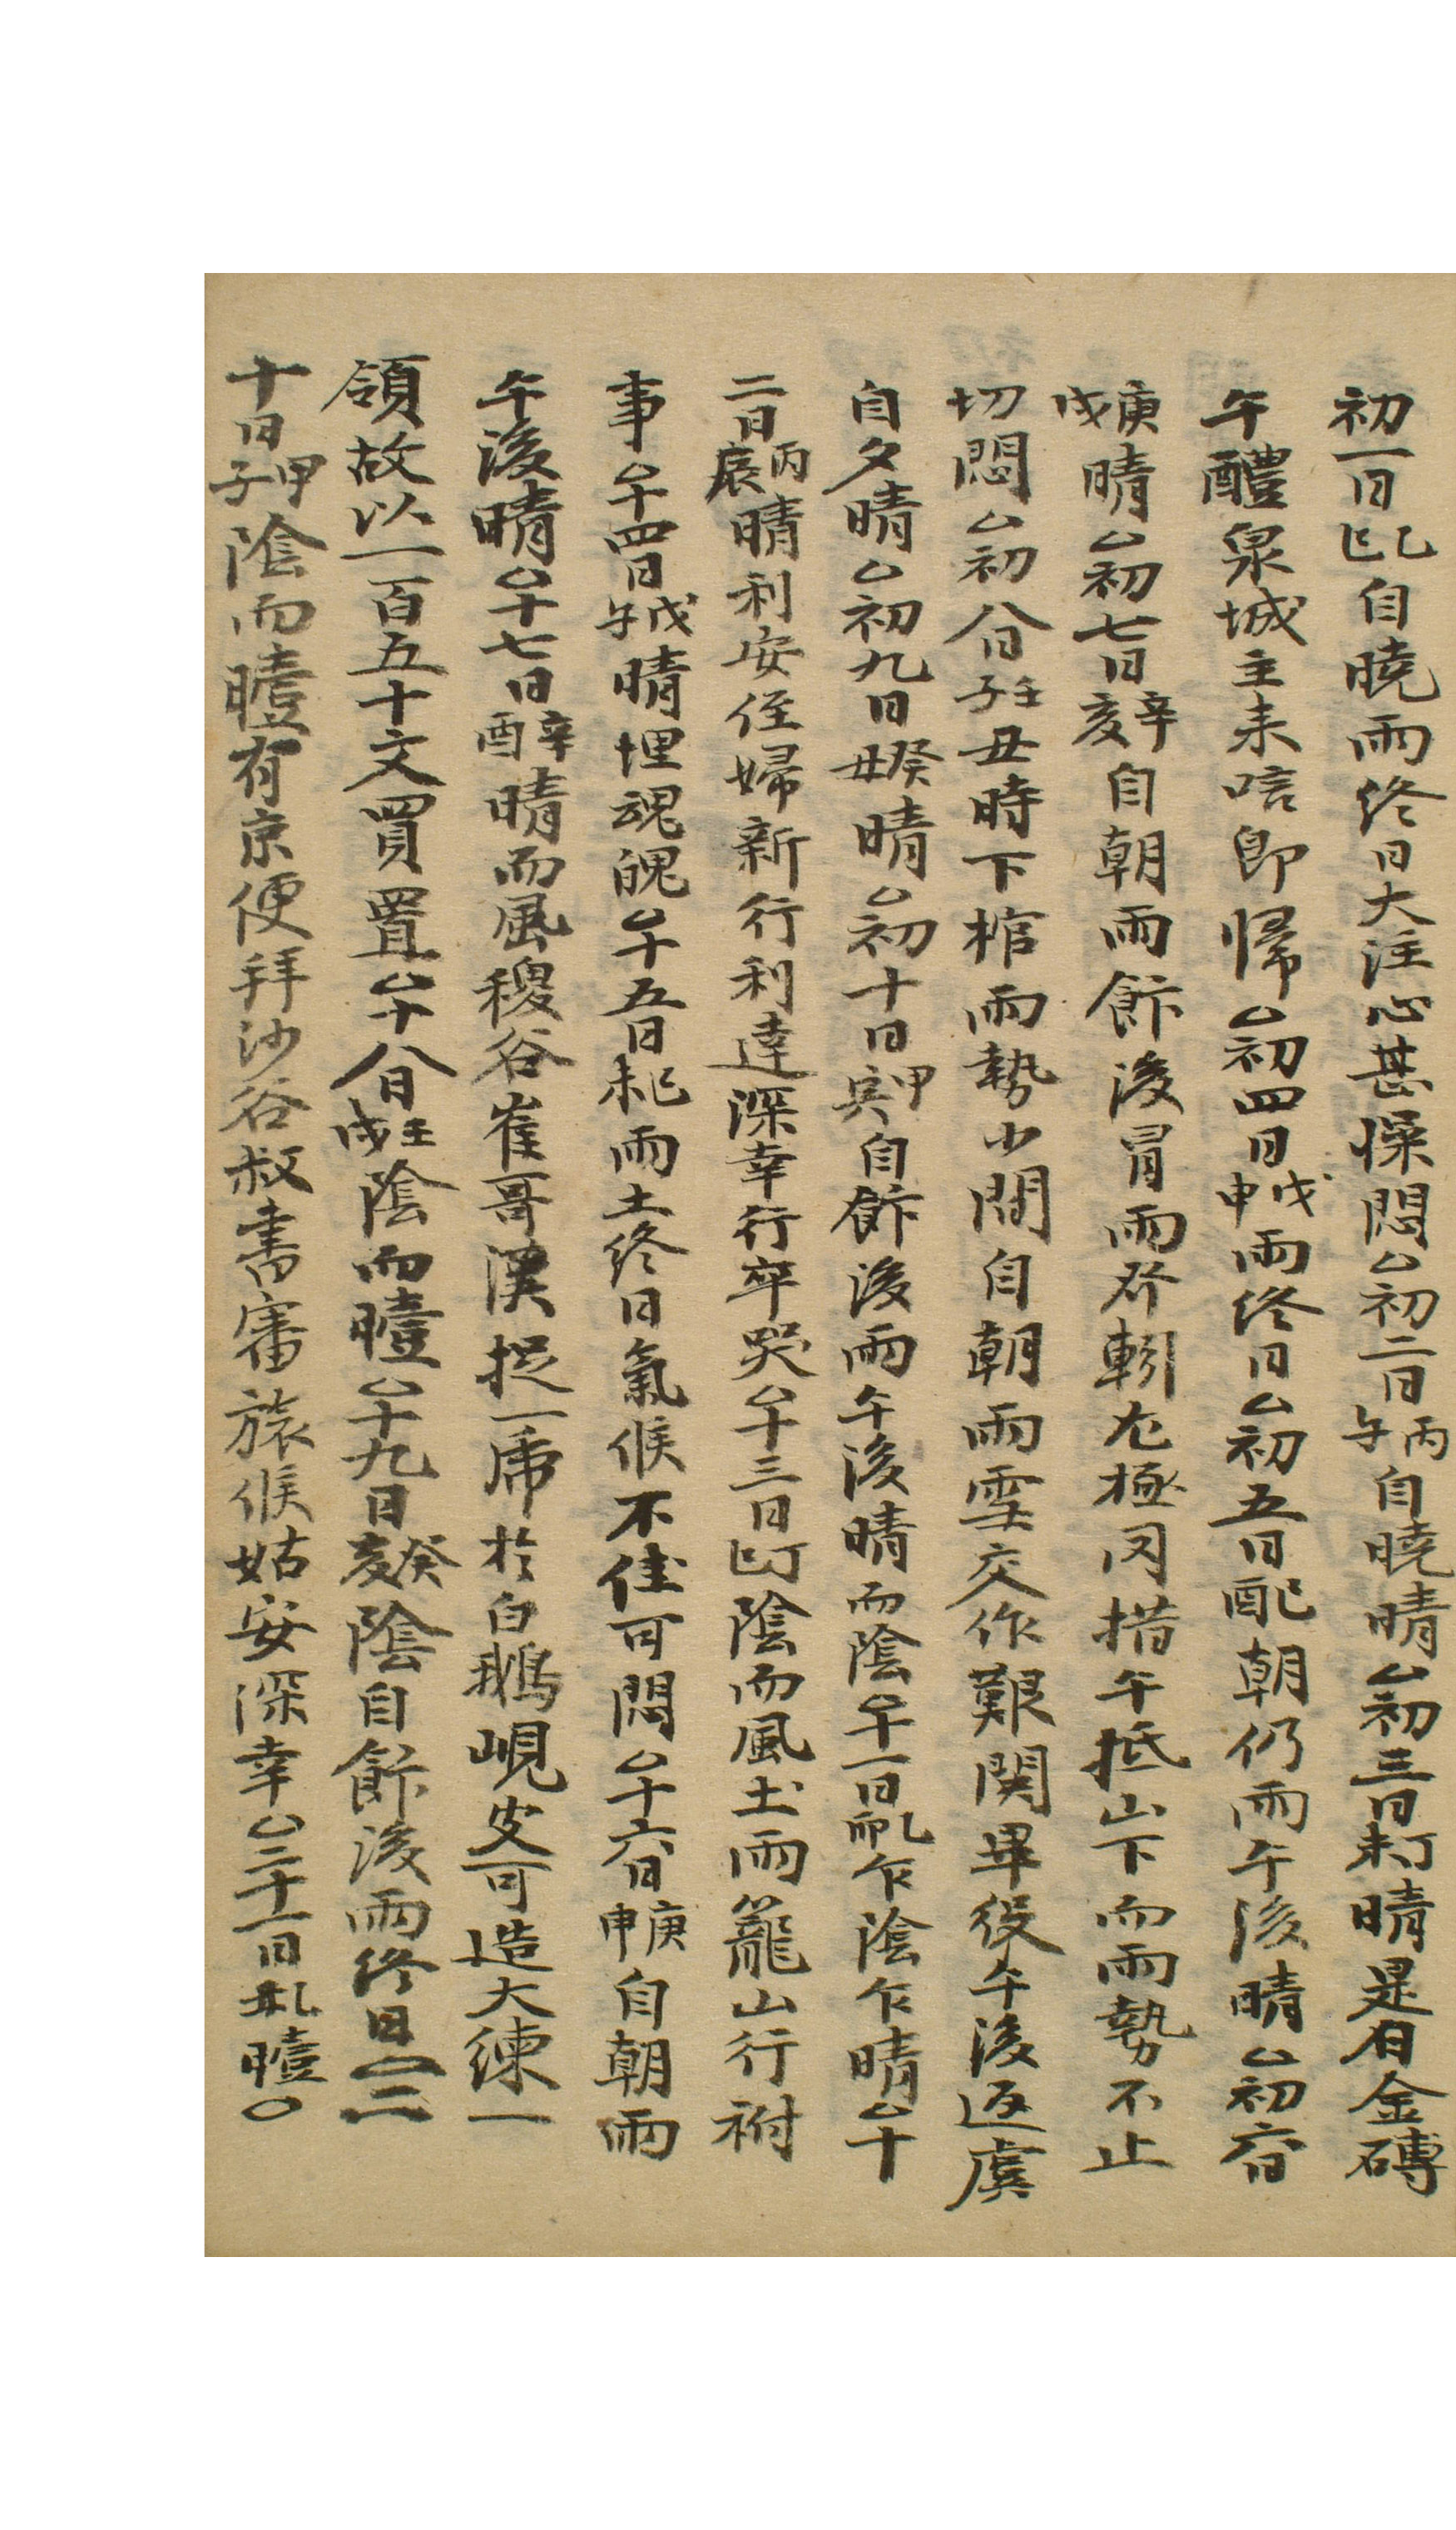 初一日乙巳自曉雨終日大注心甚燥悶○初二日丙午自曉晴○初三日丁未晴是日金磚
午醴泉城主来唁即帰○初四日戊申雨終日○初五日己酉朝仍雨午後晴○初六日
庚戌晴○初七日辛亥自朝雨餘後冒雨發靷尤極罔措午抵山下而雨勢不止
切悶○初八日壬子丑時下棺雨勢少間自朝雨雪交作艱関畢役午後返虞
自夕晴○初九日癸丑晴○初十日甲寅自飾後雨午後晴而陰○十一日乙卯乍陰乍晴○十
二日丙辰晴利安侄婦新行利達深幸行卒哭○十三日丁巳陰而風土雨籠山行祔
事○十四日戊午晴埋魂魄○十五日己未雨土終日氣候不佳可悶○十六日庚申自朝雨
午後晴○十七日辛酉晴而風稷谷崔哥漢捉一乕於白鵝峴皮可造大練一
領故以一百五十文買置○十八日壬戌陰而曀○十九日癸亥陰自飾後雨終日○二
十日甲子陰而曀有京便拜沙谷叔書審旅候姑安深幸○二十一日乙丑曀○